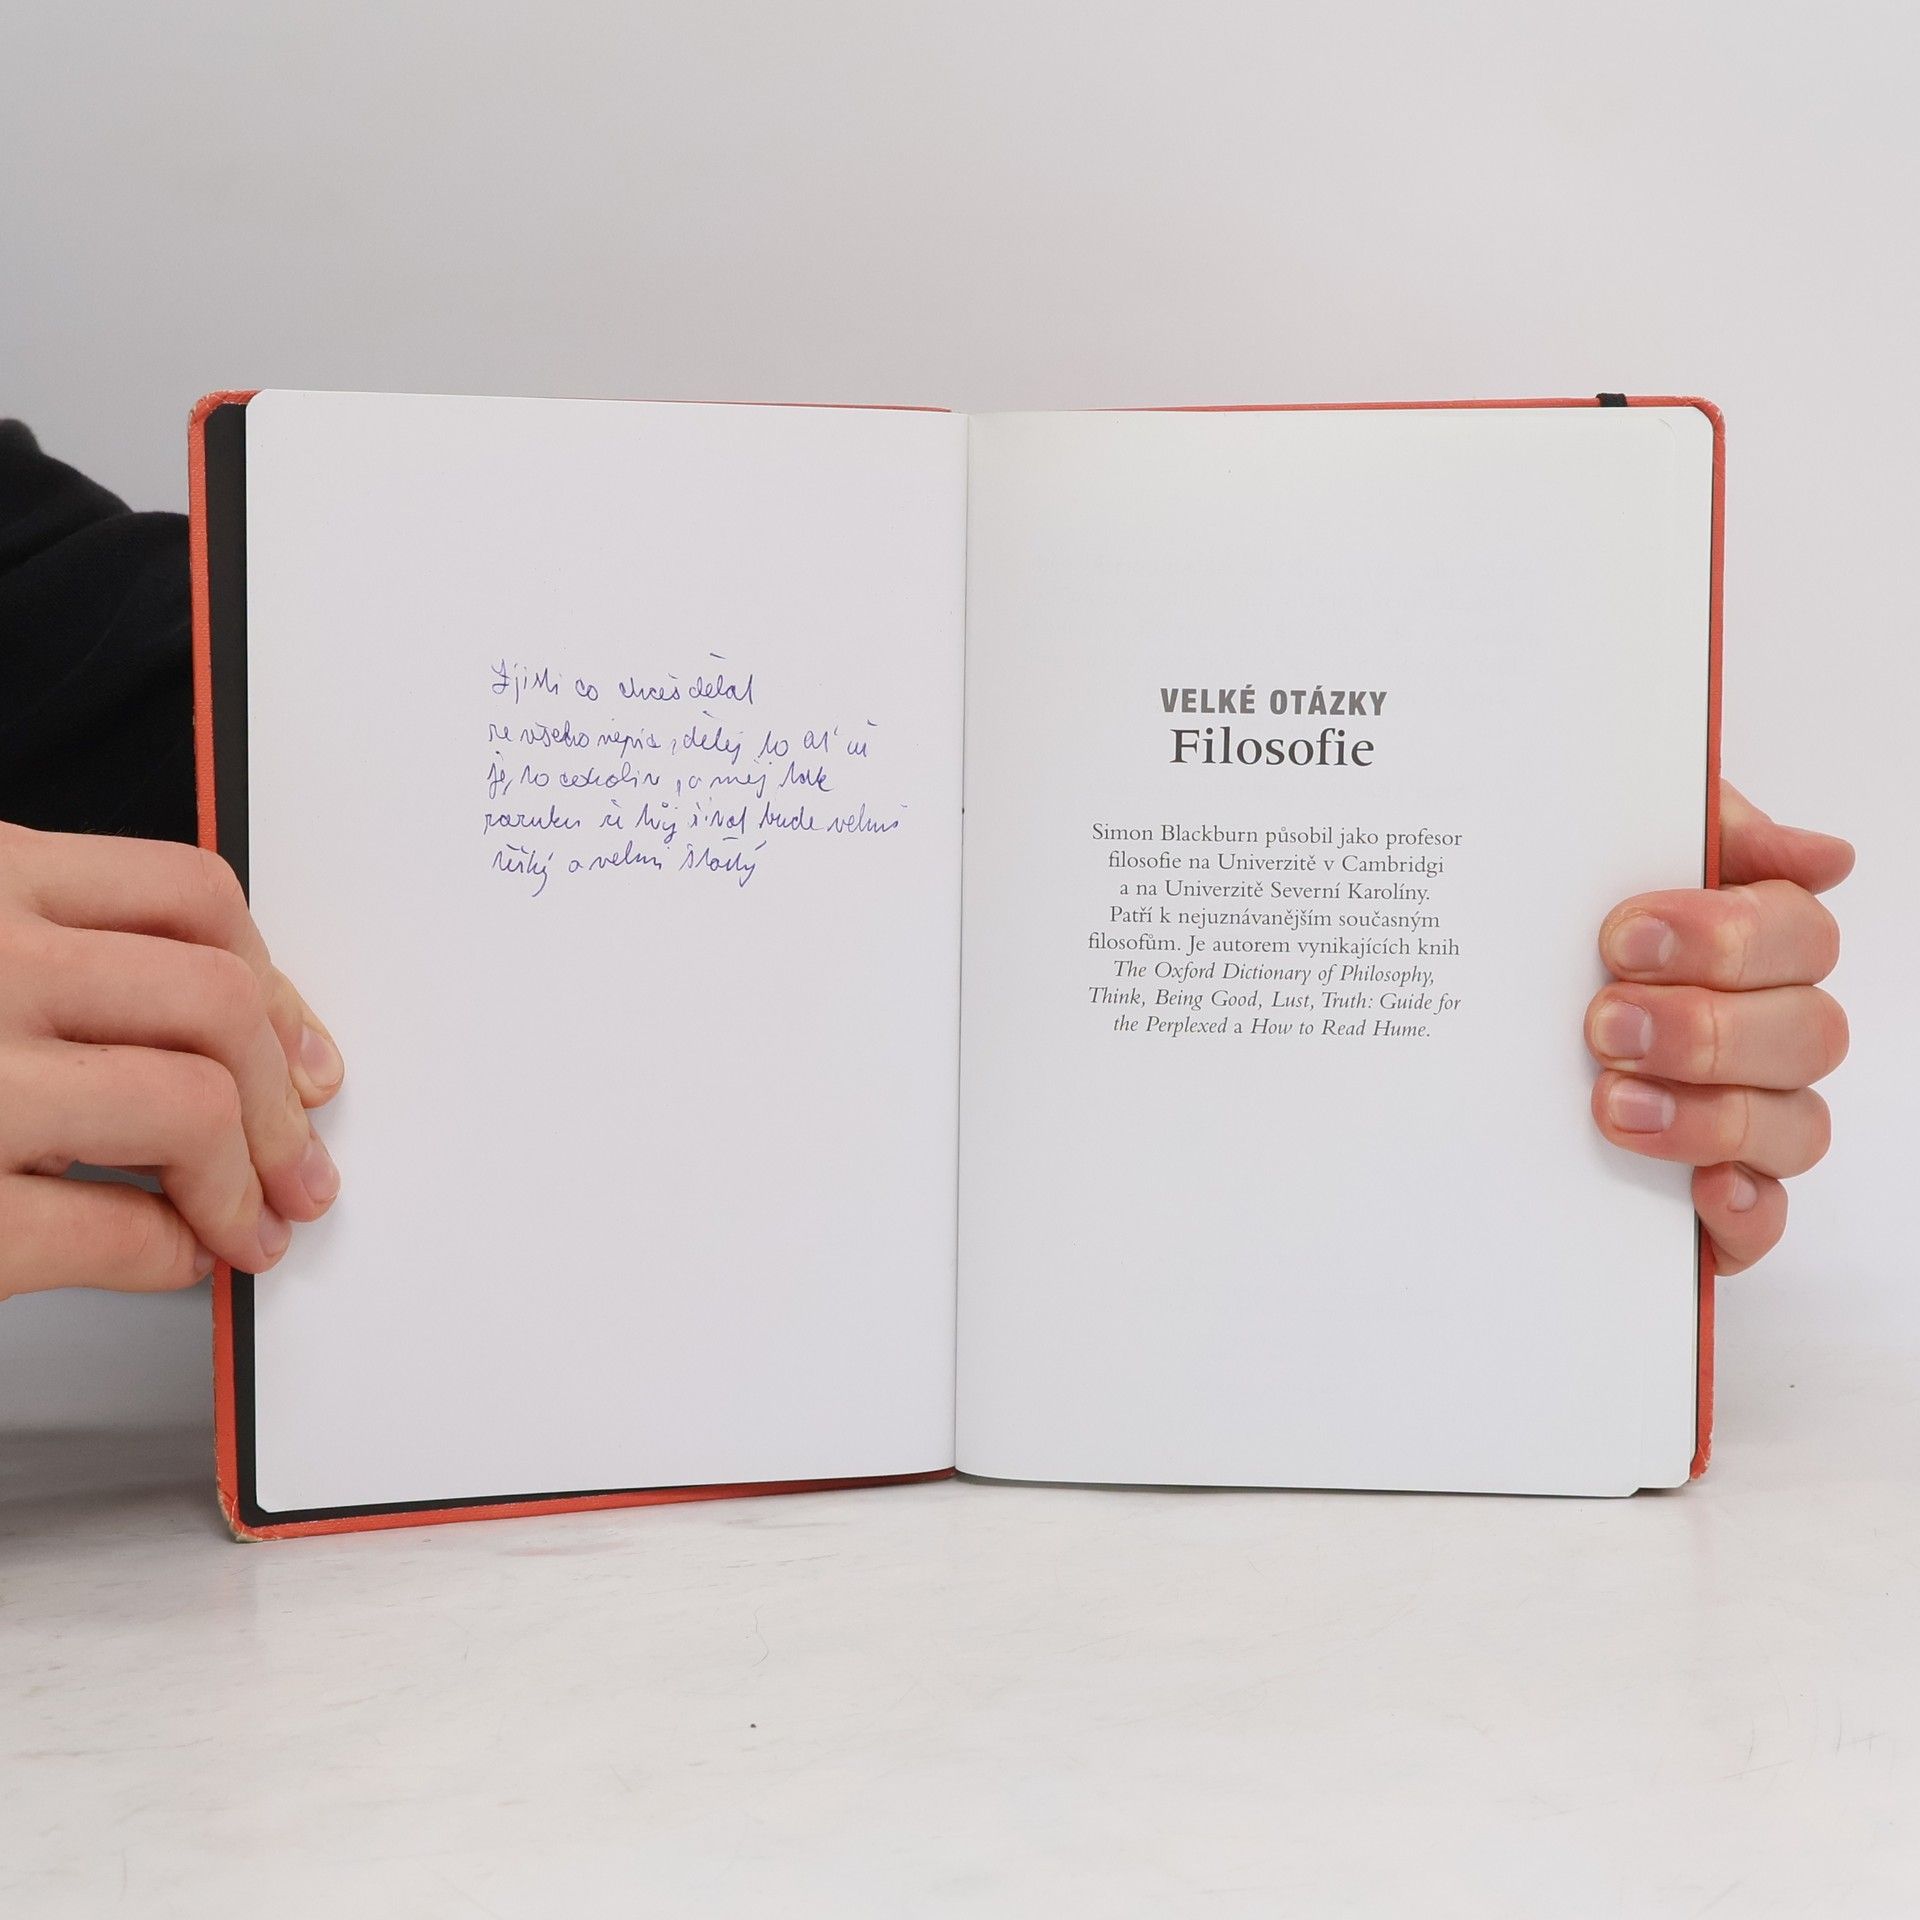 Zjisti co chceš dělat
ze všeho nejvíc, dělej to ať už
je to cokoliv, a měj tak
záruku že tvůj život bude velmi
těžký a velmi šťastný
VELKÉ OTÁZKY
Filosofie
Simon Blackburn působil jako profesor
filosofie na Univerzitě v Cambridgi
a na Univerzitě Severní Karolíny.
Patří k nejuznávanějším současným
filosofům. Je autorem vynikajících knih
The Oxford Dictionary of Philosophy,
Think, Being Good, Lust, Truth: Guide for
the Perplexed a How to Read Hume.